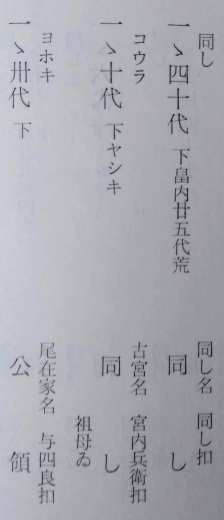 同し　同し名　同し扣
一ゝ四十代　下畠内廿五代荒　同し
コウラ　古宮名　宮内兵衛扣
一ゝ十代　下ヤシキ　同し
祖母ゐ
ヨホキ　尾在家名　与四良扣
一ゝ卅代　下　公領